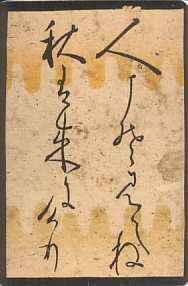 人こそ見えね
秋は来にけり